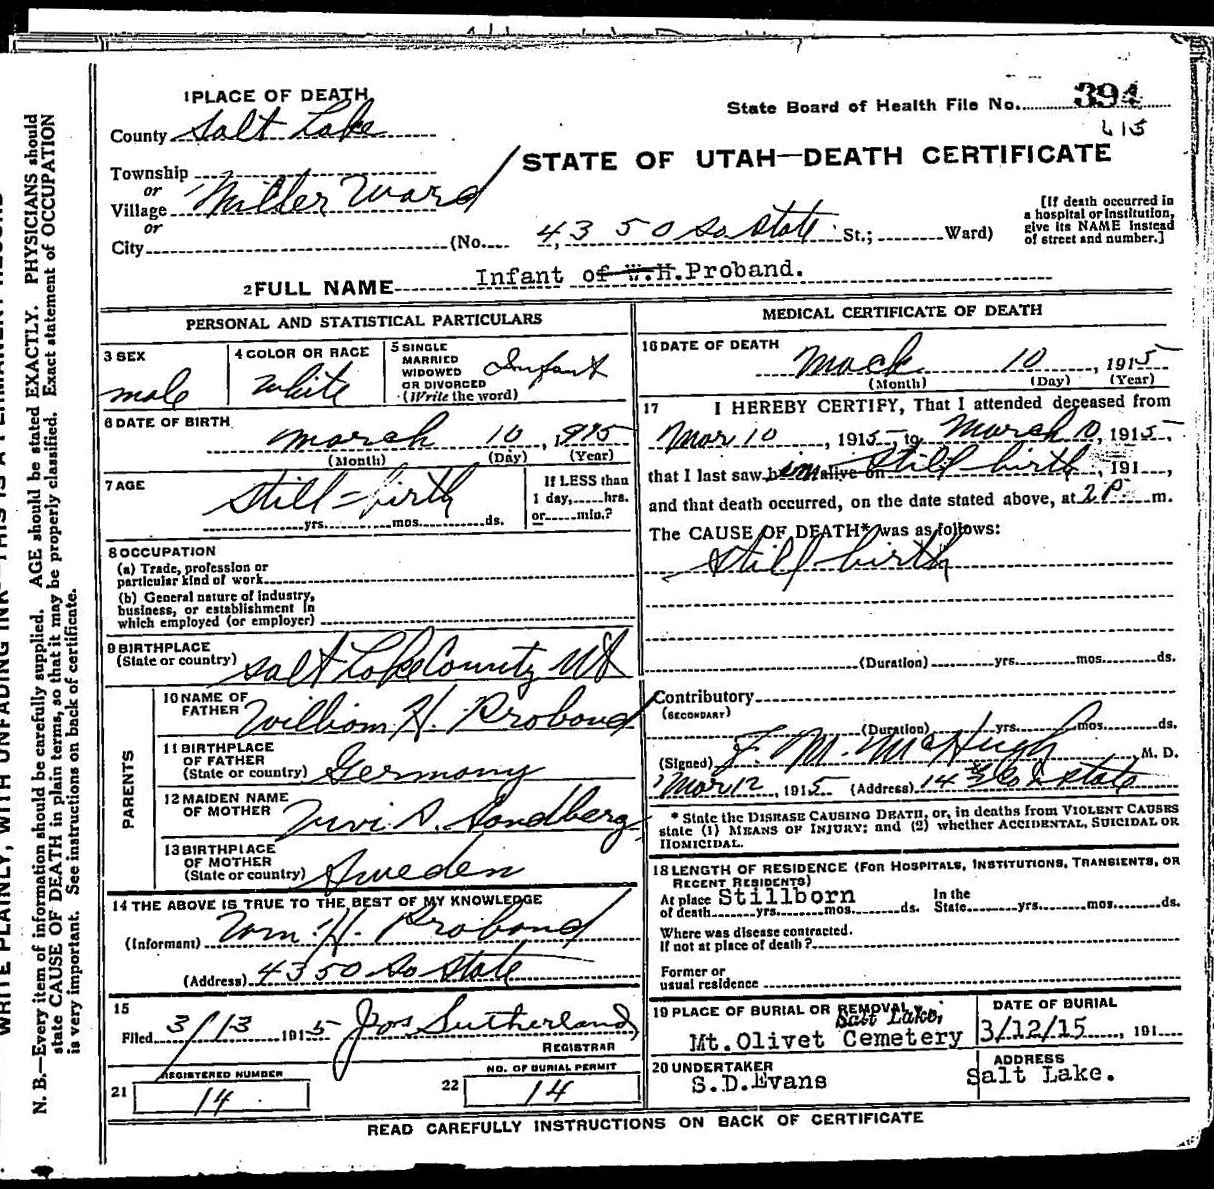 1 PLACE OF DEATH
State Board of Health File No. 394
County Salt Lake
STATE OF UTAH—DEATH CERTIFICATE
Township
or
Village Miller Ward
or
City (No. 4350 So State St.; Ward)
[If death occurred in
a hospital or institution,
give its NAME instead
of street and number.]
2 FULL NAME Infant of W.H.Proband.
PERSONAL AND STATISTICAL PARTICULARS
3 SEX
male
4 COLOR OR RACE
White
5 SINGLE
MARRIED
WIDOWED
OR DIVORCED
(Write the word)
Infant
6 DATE OF BIRTH
March 10, 1915
(Month) (Day) (Year)
7 AGE
Still-birth
yrs. mos. ds.
If LESS than
1 day, hrs.
or min.?
8 OCCUPATION
(a) Trade, profession or
particular kind of work
(b) General nature of industry,
business, or establishment in
which employed (or employer)
9 BIRTHPLACE
(State or country) Salt Lake County Ut
PARENTS
10 NAME OF
FATHER William H. Proband
11 BIRTHPLACE
OF FATHER
(State or country) Germany
12 MAIDEN NAME
OF MOTHER Sandberg
13 BIRTHPLACE
OF MOTHER
(State or country) Sweden
14 THE ABOVE IS TRUE TO THE BEST OF MY KNOWLEDGE
(Informant) Wm. H. Proband
(Address) 4350 So State
15
Filed 3/13 1915 Jos Sutherland,
REGISTRAR
REGISTERED NUMBER
21 14
NO. OF BURIAL PERMIT
22 14
MEDICAL CERTIFICATE OF DEATH
16 DATE OF DEATH
March 10, 1915
(Month) (Day) (Year)
17 I HEREBY CERTIFY, That I attended deceased from
Mar 10, 1915, to March 10, 1915,
that I last saw him alive on Still birth, 191 ,
and that death occurred, on the date stated above, at 2 P. m.
The CAUSE OF DEATH* was as follows:
Still birth
(Duration) yrs. mos. ds.
Contributory
(SECONDARY)
(Duration) yrs. mos. ds.
(Signed) F. M. McHugh, M. D.
Mar 12, 1915 (Address) State
* State the DISEASE CAUSING DEATH, or, in deaths from VIOLENT CAUSES
state (1) MEANS OF INJURY; and (2) whether ACCIDENTAL, SUICIDAL OR
HOMICIDAL.
18 LENGTH OF RESIDENCE (FOR HOSPITALS, INSTITUTIONS, TRANSIENTS, OR
RECENT RESIDENTS)
At place Stillborn In the
of death yrs. mos. ds. State yrs. mos. ds.
Where was disease contracted.
If not at place of death?
Former or
usual residence
19 PLACE OF BURIAL OR REMOVAL
Salt Lake,
Mt.Olivet Cemetery
DATE OF BURIAL
3/12/15, 191
20 UNDERTAKER
S.D.Evans
ADDRESS
Salt Lake.
READ CAREFULLY INSTRUCTIONS ON BACK OF CERTIFICATE
N. B.—Every item of information should be carefully supplied. AGE should be stated EXACTLY. PHYSICIANS should
state CAUSE OF DEATH in plain terms, so that it may be properly classified. Exact statement of OCCUPATION
is very important. See instructions on back of certificate.
WRITE PLAINLY, WITH UNFADING INK—THIS IS A PERMANENT RECORD